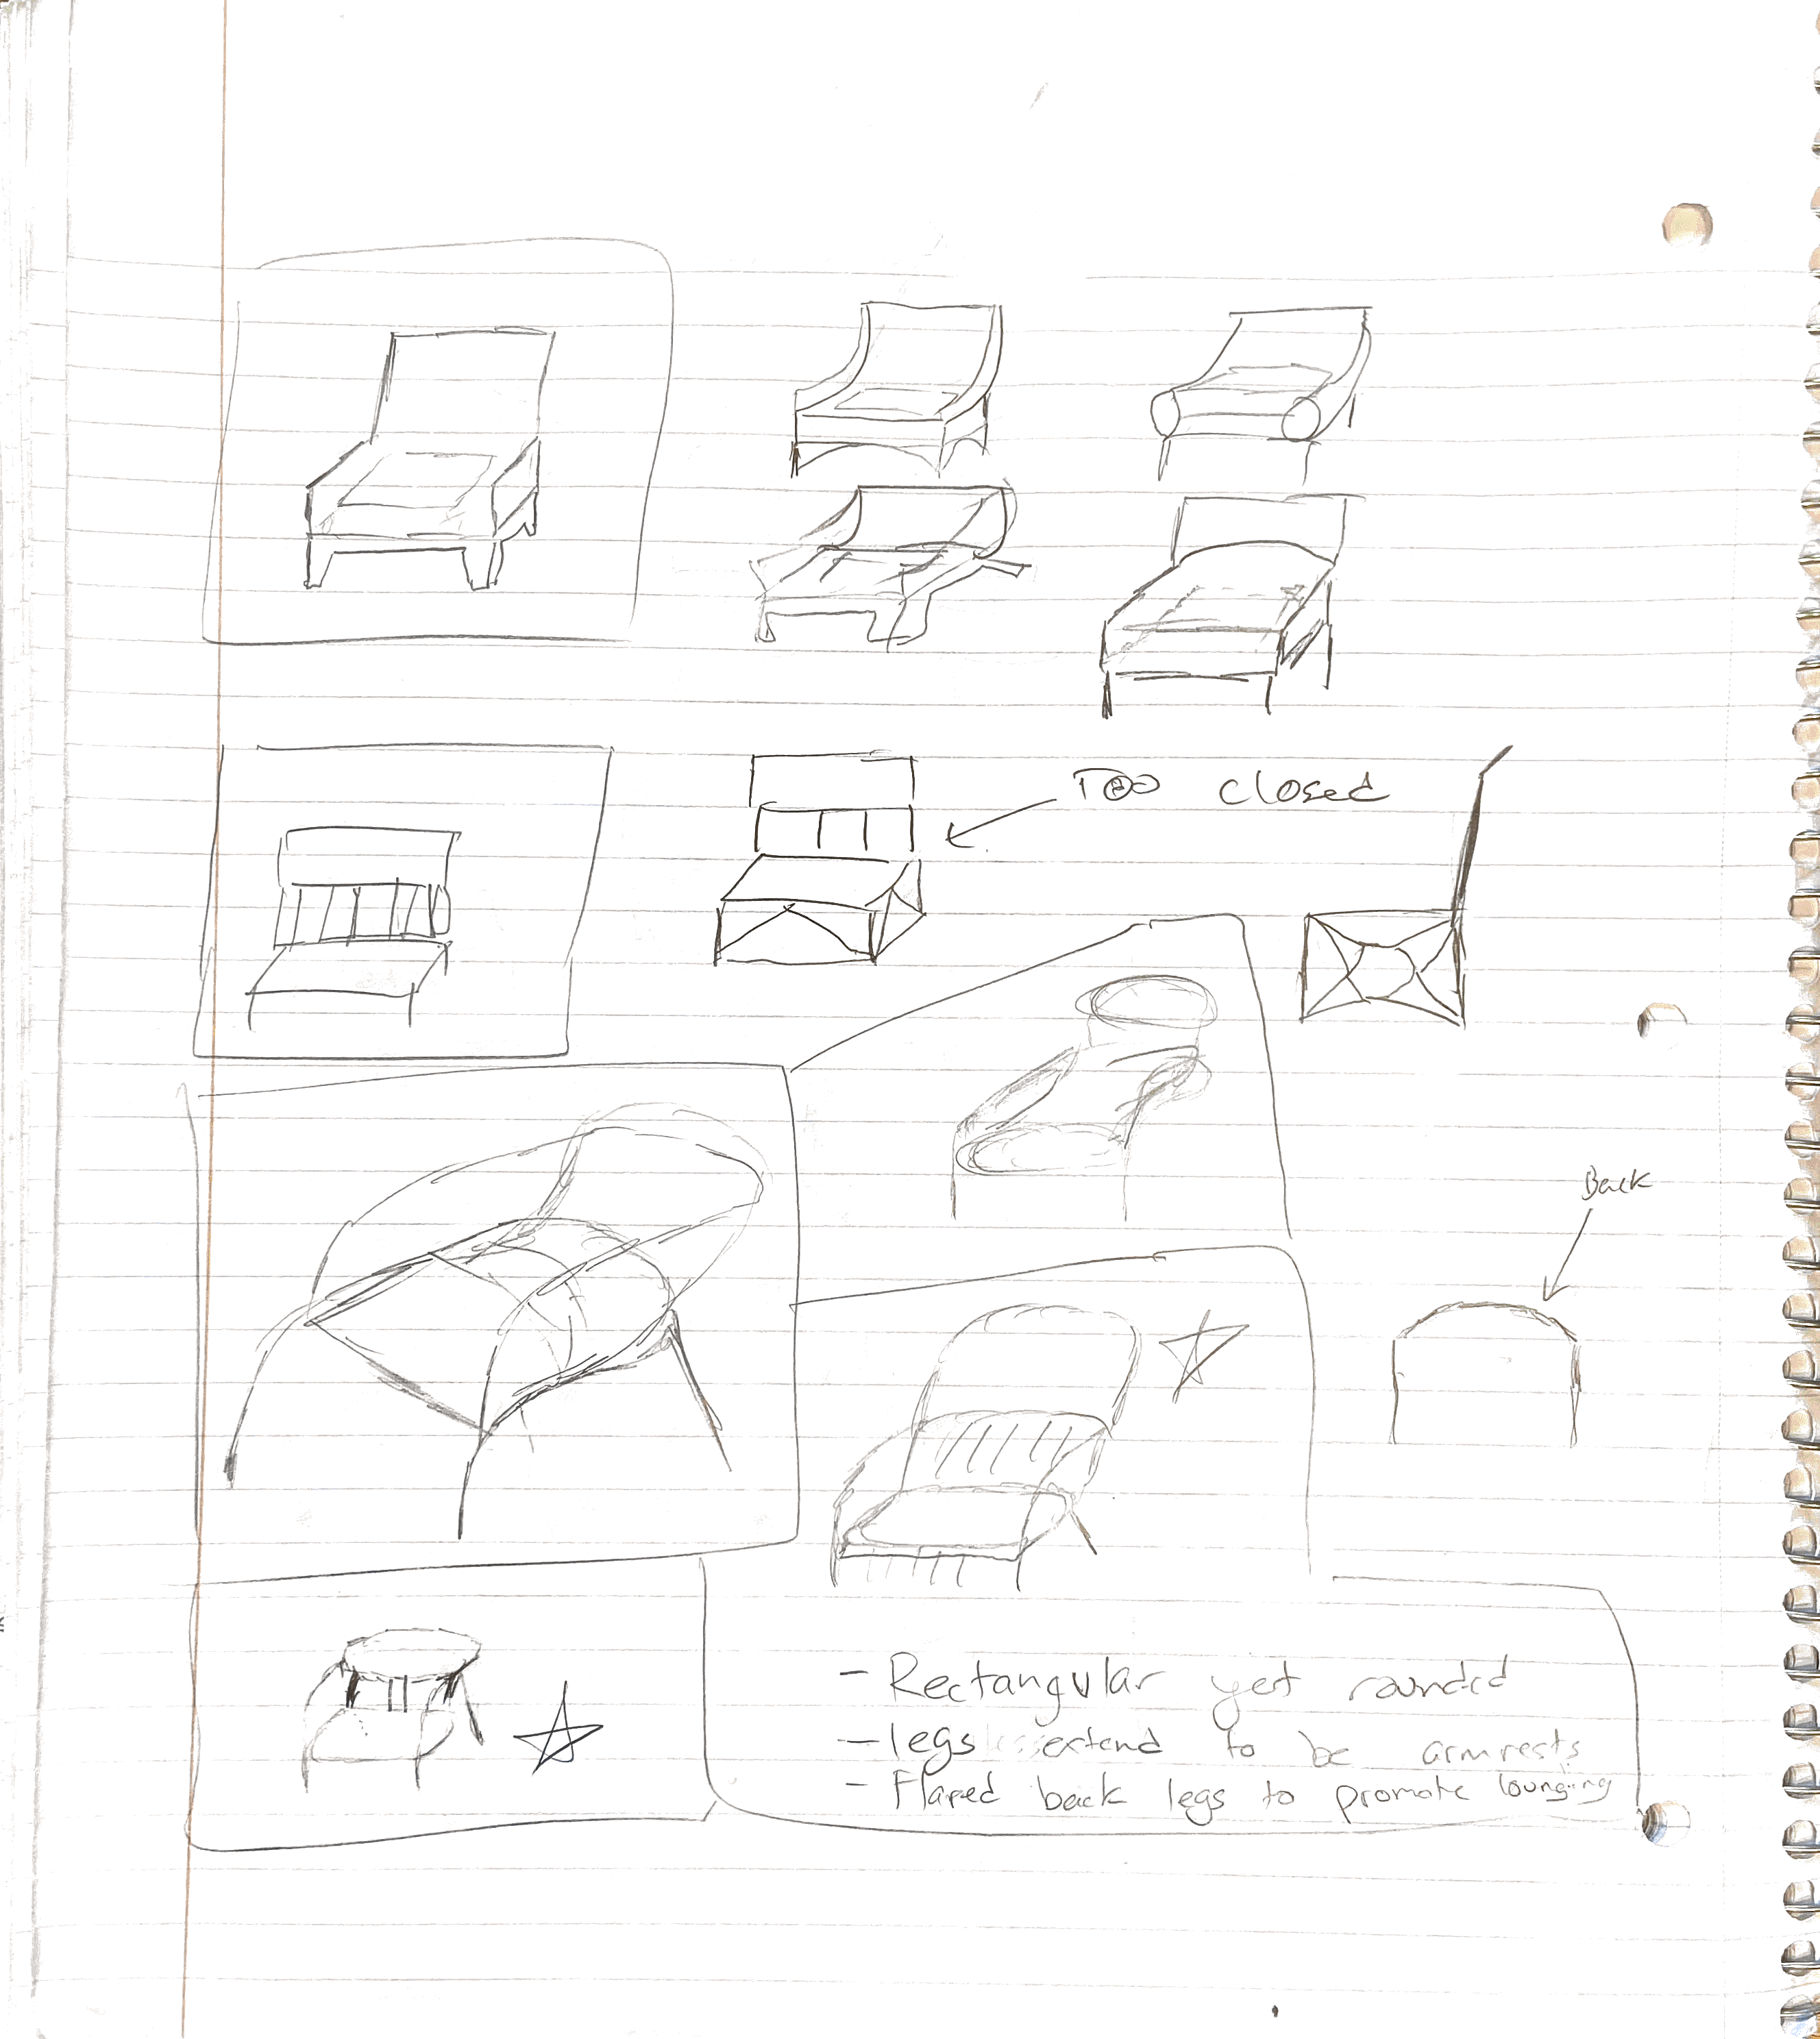 Too closed
Back
- Rectangular yet rounded
- legs extend to be armrests
- Flared back legs to promote lounging